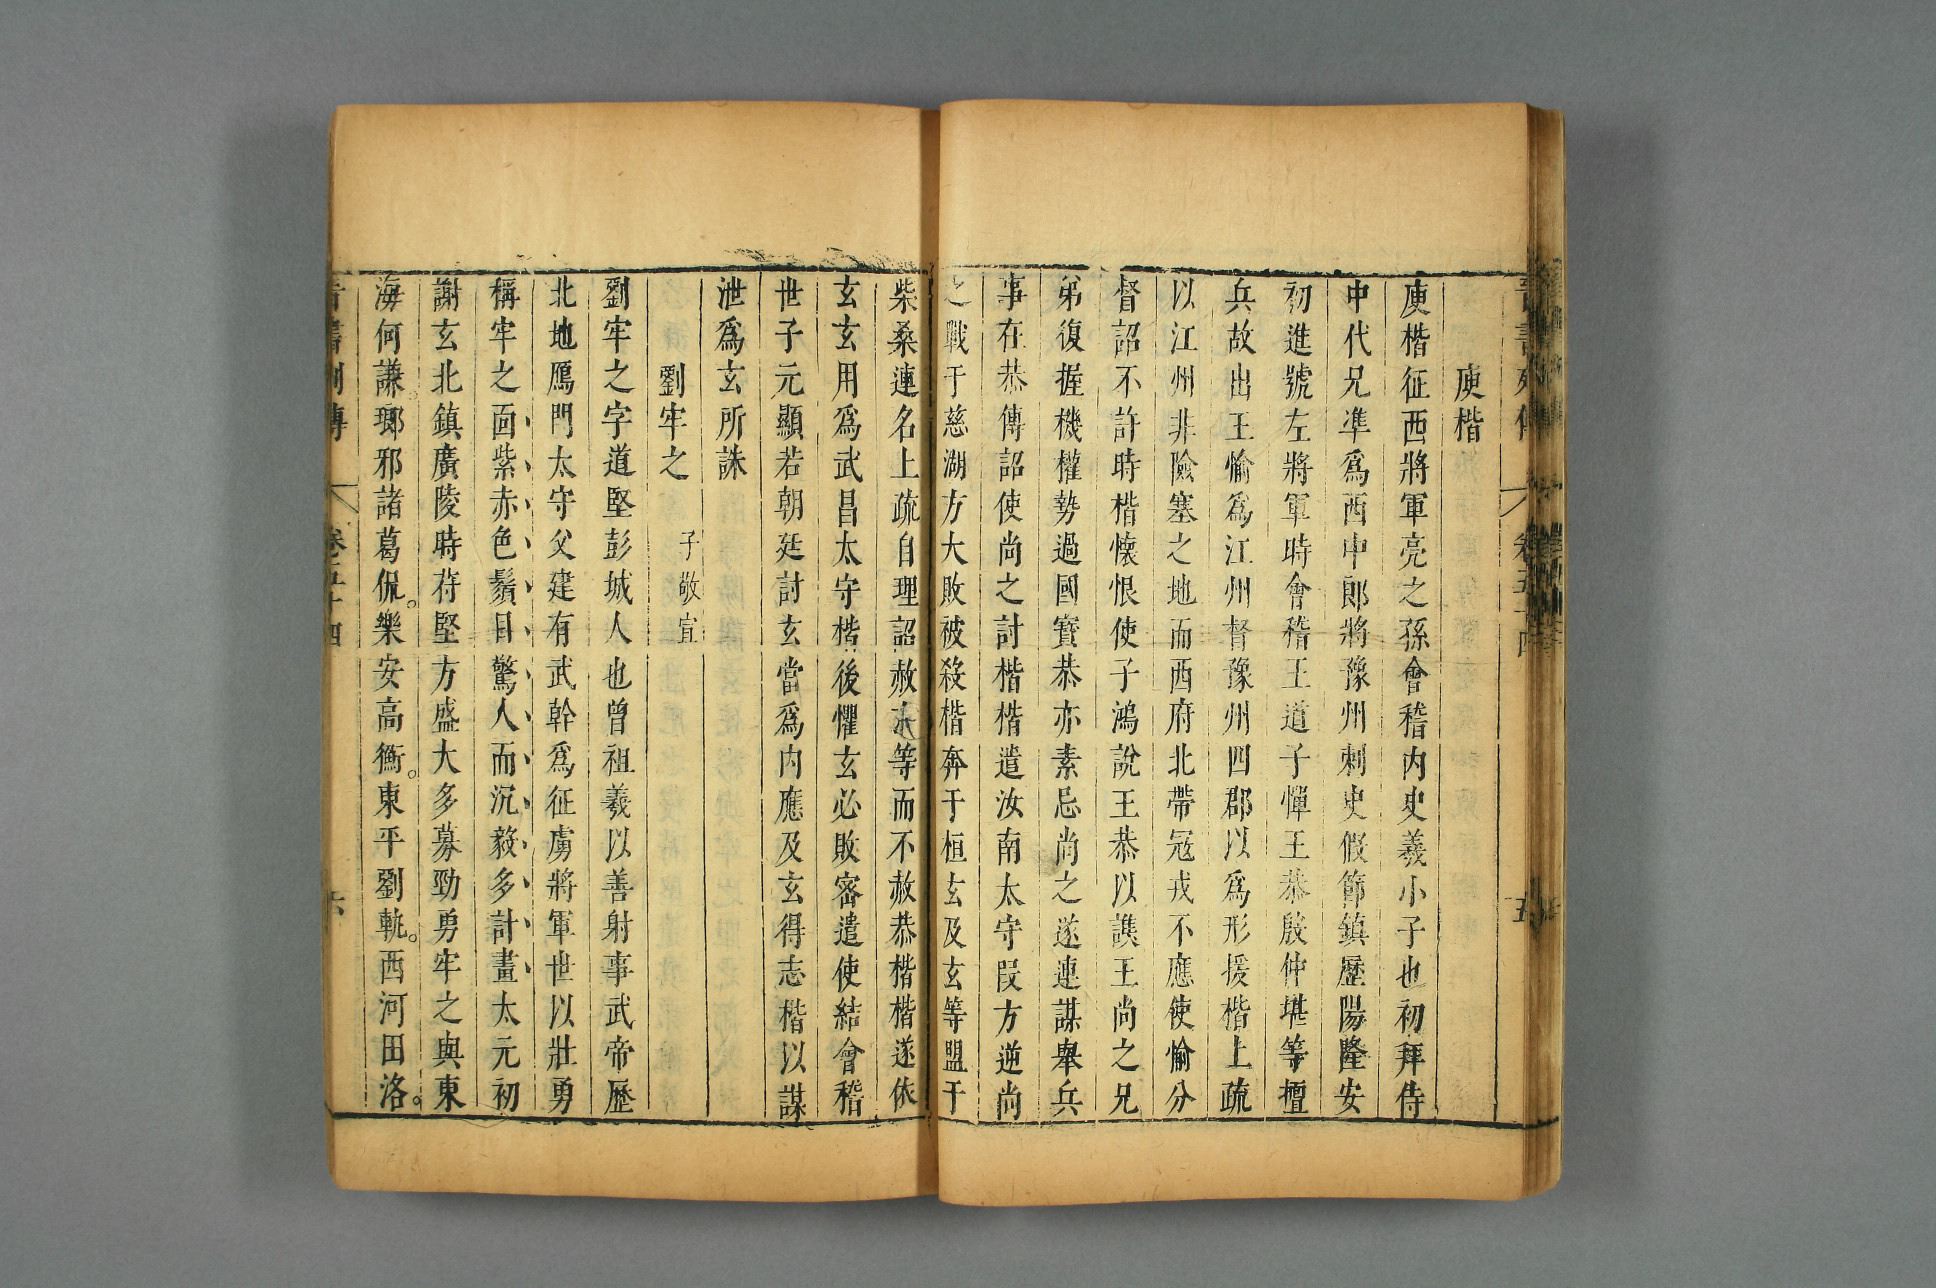 晉書列傳 卷五十四 五
庾楷
庾楷征西將軍亮之孫會稽內史羲小子也初拜侍
中代兄準爲西中郎將豫州刺史假節鎮歷陽隆安
初進號左將軍時會稽王道子憚王恭殷仲堪等擅
兵故出王愉爲江州督豫州四郡以爲形援楷上疏
以江州非險塞之地而西府北帶冦戎不應使愉分
督詔不許時楷懷恨使子鴻說王恭以譙王尚之兄
弟復握機權勢過國寶恭亦素忌尚之遂連謀舉兵
事在恭傳詔使尚之討楷楷遣汝南太守段方逆尚
之戰于慈湖方大敗被殺楷奔于桓玄及玄等盟于
柴桑連名上疏自理詔赦玄等而不赦恭楷楷遂依
玄玄用爲武昌太守楷後懼玄必敗密遣使結會稽
世子元顯若朝廷討玄當爲內應及玄得志楷以謀
泄爲玄所誅
劉牢之 子敬宣
劉牢之字道堅彭城人也曾祖羲以善射事武帝歷
北地鴈門太守父建有武幹爲征虜將軍世以壯勇
稱牢之面紫赤色鬚目驚人而沉毅多計畫太元初
謝玄北鎮廣陵時苻堅方盛大多募勁勇牢之與東
海何謙。瑯邪諸葛侃。樂安高衡。東平劉軌。西河田洛。
晉書列傳 卷五十四 六